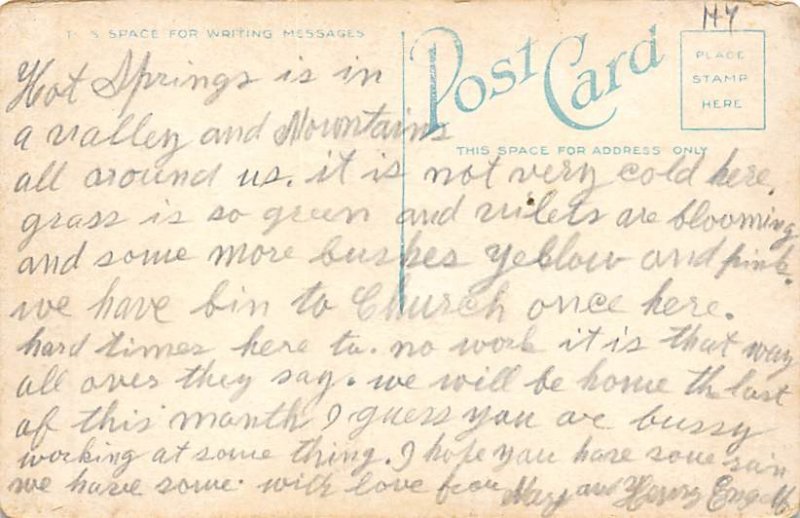 HY
THIS SPACE FOR WRITING MESSAGES
Post Card
PLACE
STAMP
HERE
THIS SPACE FOR ADDRESS ONLY
Hot Springs is in
a valley and Mountains
all around us. it is not very cold here,
grass is so green and vilets are blooming
and some more bushes yeblow and pink.
we have bin to Church once here.
hard times here to. no work it is that way
all over they say. we will be home the last
of this manth I guess you are bussy
working at some thing. I hope you have some rain
we have some. with love from Mary and Henry